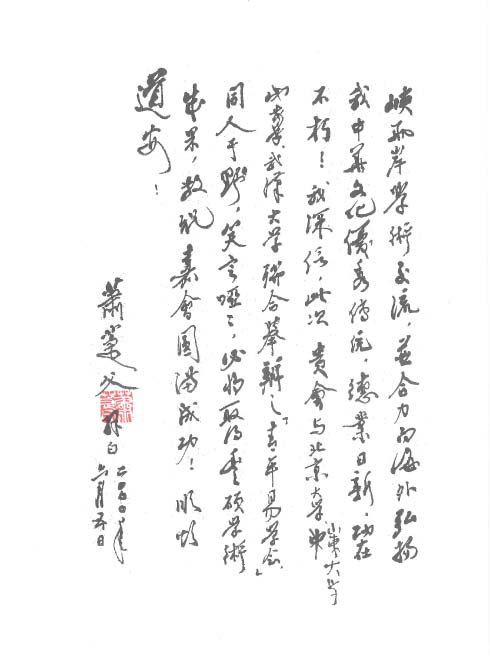 峽兩岸學術交流，並合力向海外弘揚
我中華文化優秀傳統，德業日新，功在
不朽！我深信，此次 貴會與北京大學
山東大学
武漢大学聯合舉辦之「青年易學會」
同人于野，笑言啞〻，必將取得豐碩學術
成果，敬祝 嘉會圓滿成功！順頌
道安！
蕭萐父 拜白
年
六月五日